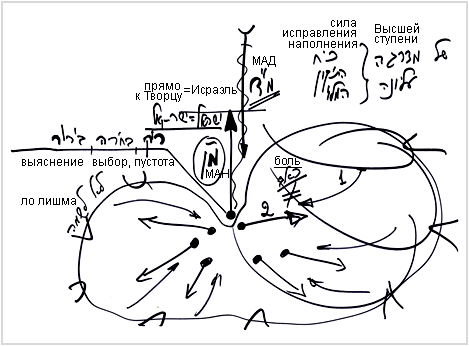 сила исправления наполнения
Высшей ступени
כח
התיקון
המילוי
של
מדרגה
עליונה
МАД
מ"ד
прямо к Творцу=Исраэль
ישראל=ישר-אל
ריק
בחירה
בירור
выяснение
выбор, пустота
מ"ן
МАН
боль
1
2
ло лишма